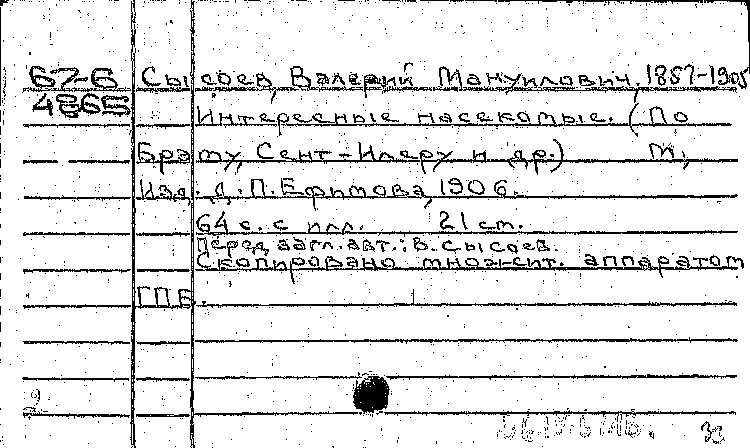 67-6 Сысоев, Валерий Мануилович, 1857-1905
4865 Интересные насекомые. (По
Брэму, Сент-Илеру и др.) М.,
Изд. Д.П. Ефимова, 1906.
64 с. с илл. 21 см.
Перед загл. авт.: В. Сысоев.
Скопировано множит. аппаратом
ГПБ.
2
33